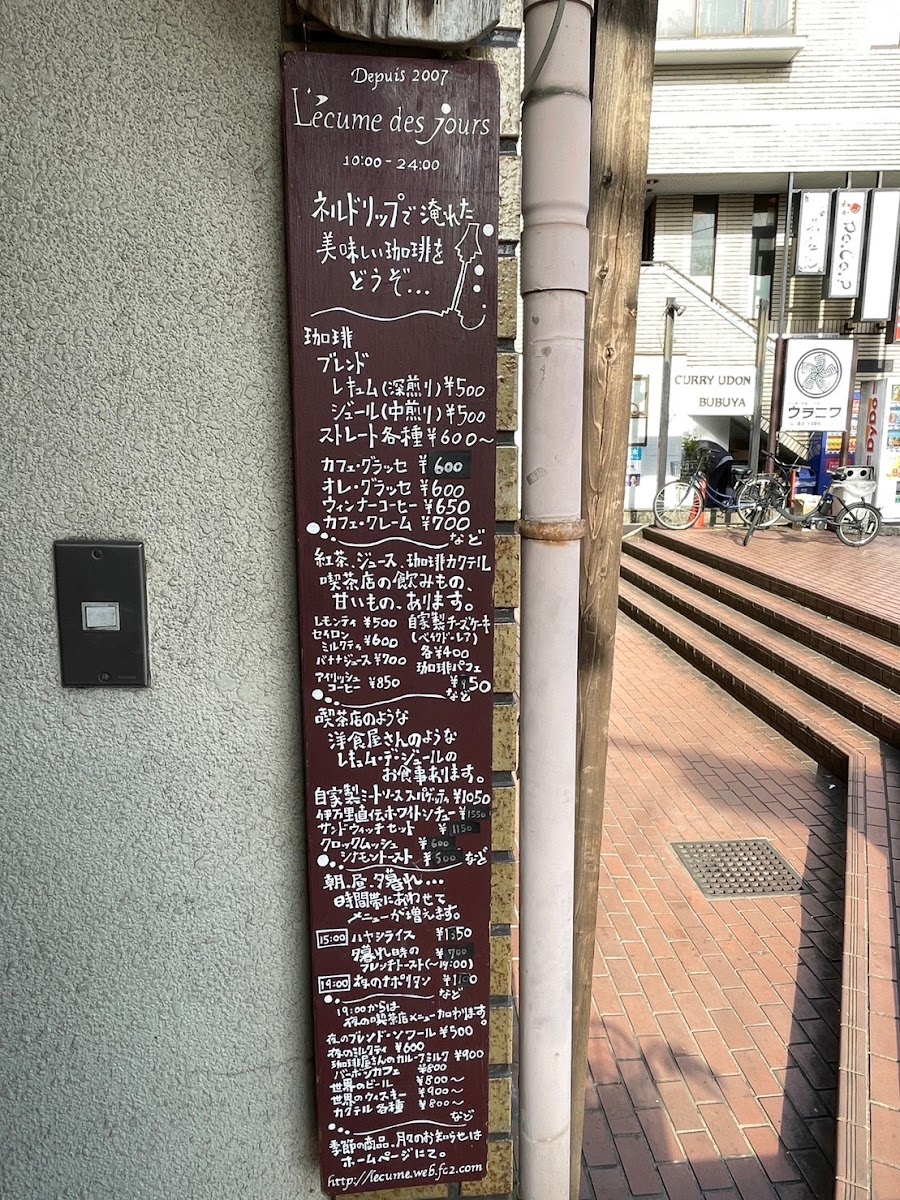 Depuis 2007
L'écume des jours
10:00-24:00
ネルドリップで淹れた
美味しい珈琲を
どうぞ...
珈琲
ブレンド
レキュム(深煎り)¥500
ジュール(中煎り)¥500
ストレート各種¥600〜
カフェ・グラッセ ¥600
オレ・グラッセ ¥600
ウィンナーコーヒー ¥650
カフェ・クレーム ¥700
など
紅茶、ジュース、珈琲カクテル
喫茶店の飲みもの、
甘いもの、あります。
レモンティ ¥500
セイロン
ミルクティ ¥600
バナナジュース ¥700
アイリッシュ
コーヒー ¥850
自家製チーズケーキ
(ベイクド・レア)
各¥400
珈琲パフェ
¥950
など
喫茶店のような
洋食屋さんのような
レキュム・デ・ジュールの
お食事あります。
自家製ミートソーススパゲッティ ¥1050
伊万里直伝ホワイトシチュー ¥1550
サンドウィッチセット ¥1150
クロックムッシュ ¥600
シナモントースト ¥500 など
朝、昼、夕暮れ...
時間帯にあわせて
メニューが増えます。
15:00 ハヤシライス ¥1350
夕暮れ時の ¥700
フレンチトースト(〜19:00)
19:00 夜のナポリタン ¥1100
など
19:00からは
夜の喫茶店メニュー加わります。
夜のブレンド・ソワール ¥500
夜のミルクティ ¥600
珈琲屋さんのカルーアミルク ¥900
バーボンカフェ ¥800
世界のビール ¥800〜
世界のウィスキー ¥900〜
カクテル各種 ¥800〜
など
季節の商品、月々のお知らせは
ホームページにて。
http://lecume.web.fc2.com
CURRY UDON
BUBUYA
ウラニワ
DyDo